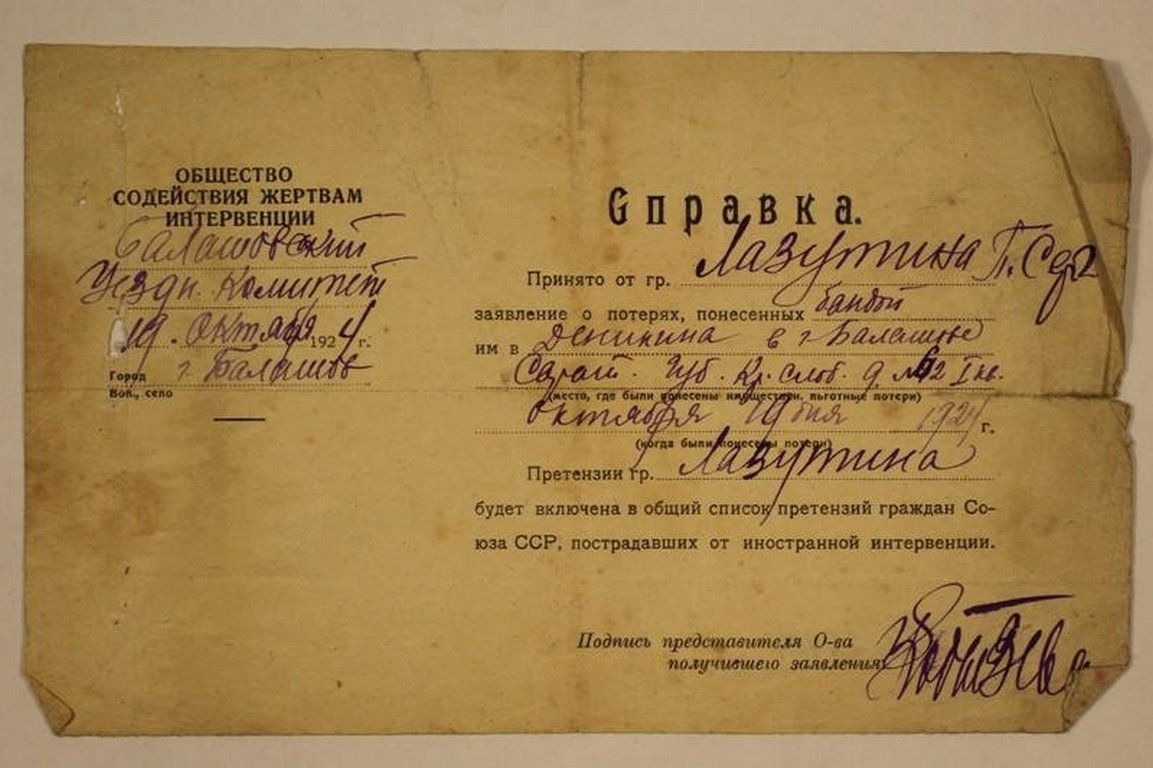 ОБЩЕСТВО
СОДЕЙСТВИЯ ЖЕРТВАМ
ИНТЕРВЕНЦИИ
Балашовский
Уездн. Комитет
19. октября 1924 г.
Город г. Балашов
Вол., село
Справка.
Принято от гр. Лазутина П.
заявление о потерях, понесенных бандой
им в Деникина в г Балашове
Сарат. Губ. Кр. слоб. д. I кв.
(место, где были понесены имуществен. льготные потери)
октября 19 дня 1924 г.
(когда были понесены потери)
Претензии гр. Лазутина
будет включена в общий список претензий граждан Со-
юза ССР, пострадавших от иностранной интервенции.
Подпись представителя О-ва
получившего заявления